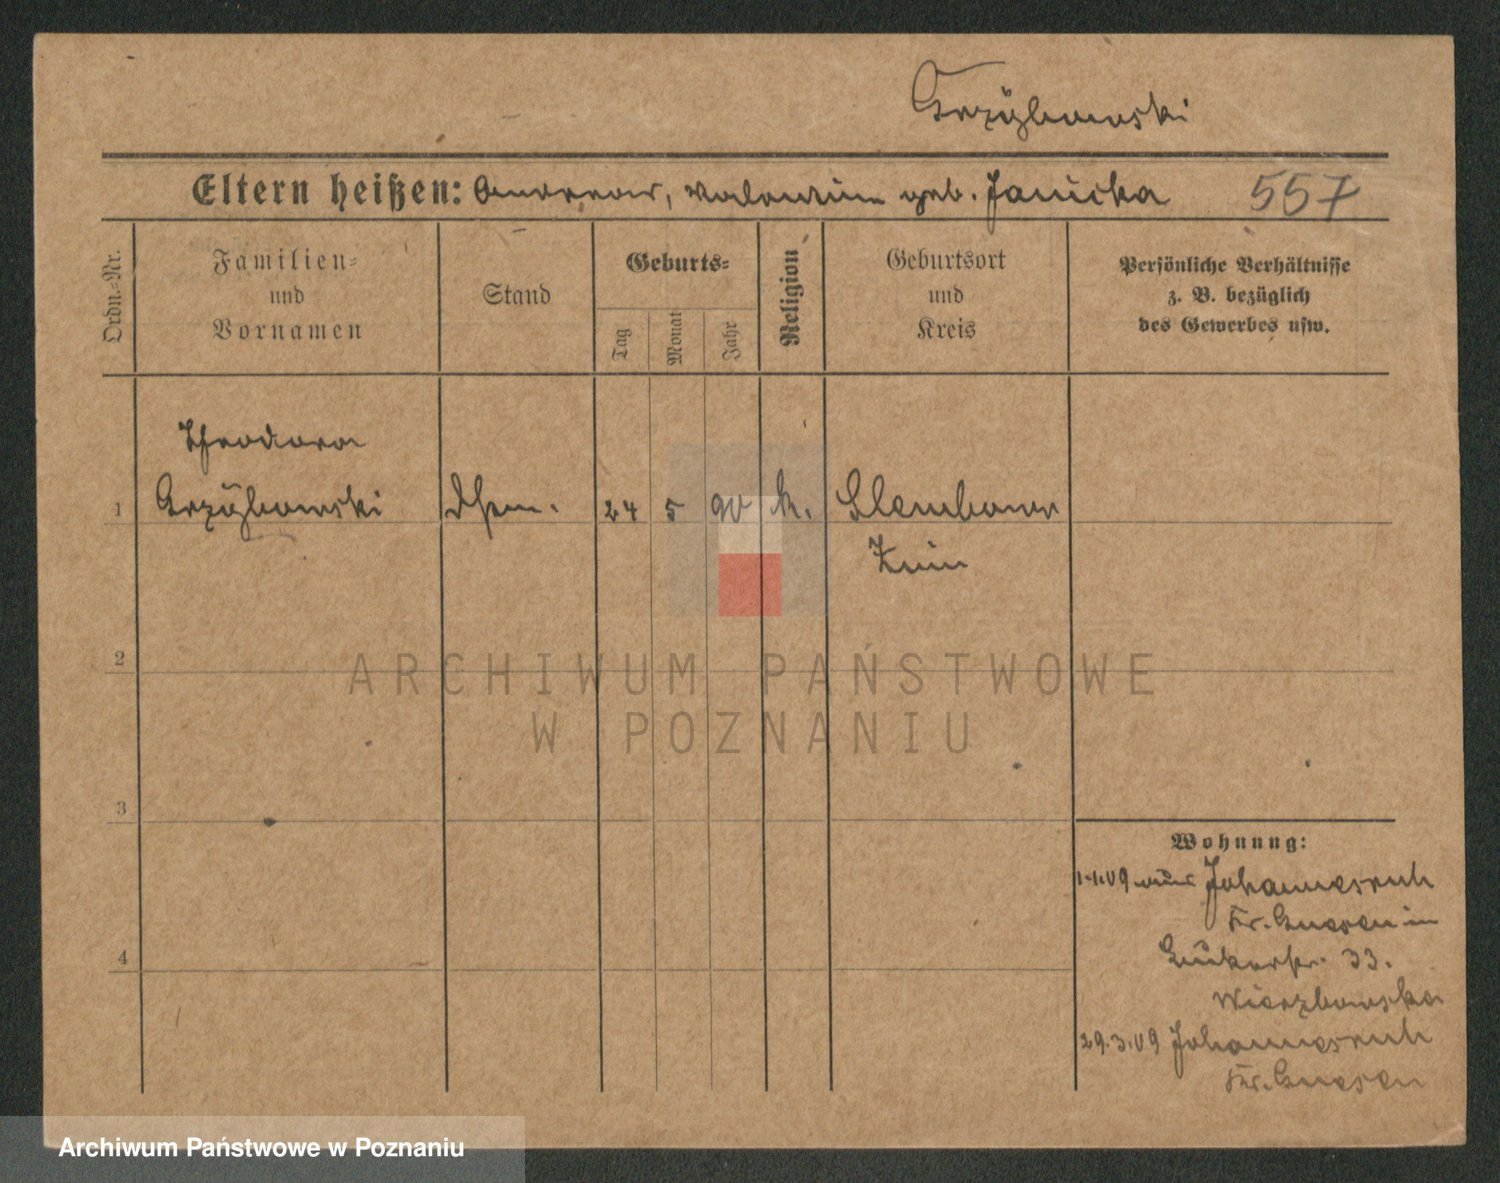 Grzÿbowski
Eltern heißen: Andreas, Valentine geb. Janicka 557
Ordn.-Nr.
Familien-
und
Vornamen
Stand
Geburts-
Tag
Monat
Jahr
Religion
Geburtsort
und
Kreis
Persönliche Verhältnisse
z. B. bezüglich
des Gewerbes usw.
Theodora
1 Grzÿbowski 24 5 90 k.
Znin
2
ARCHIWUM PAŃSTWOWE
W POZNANIU
3
Wohnung:
1.1.09 aus Johannesruh
Kr. Gnesen in
33.
Wierzbowska
4
29.3.09 Johannesruh
Kr. Gnesen
Archiwum Państwowe w Poznaniu